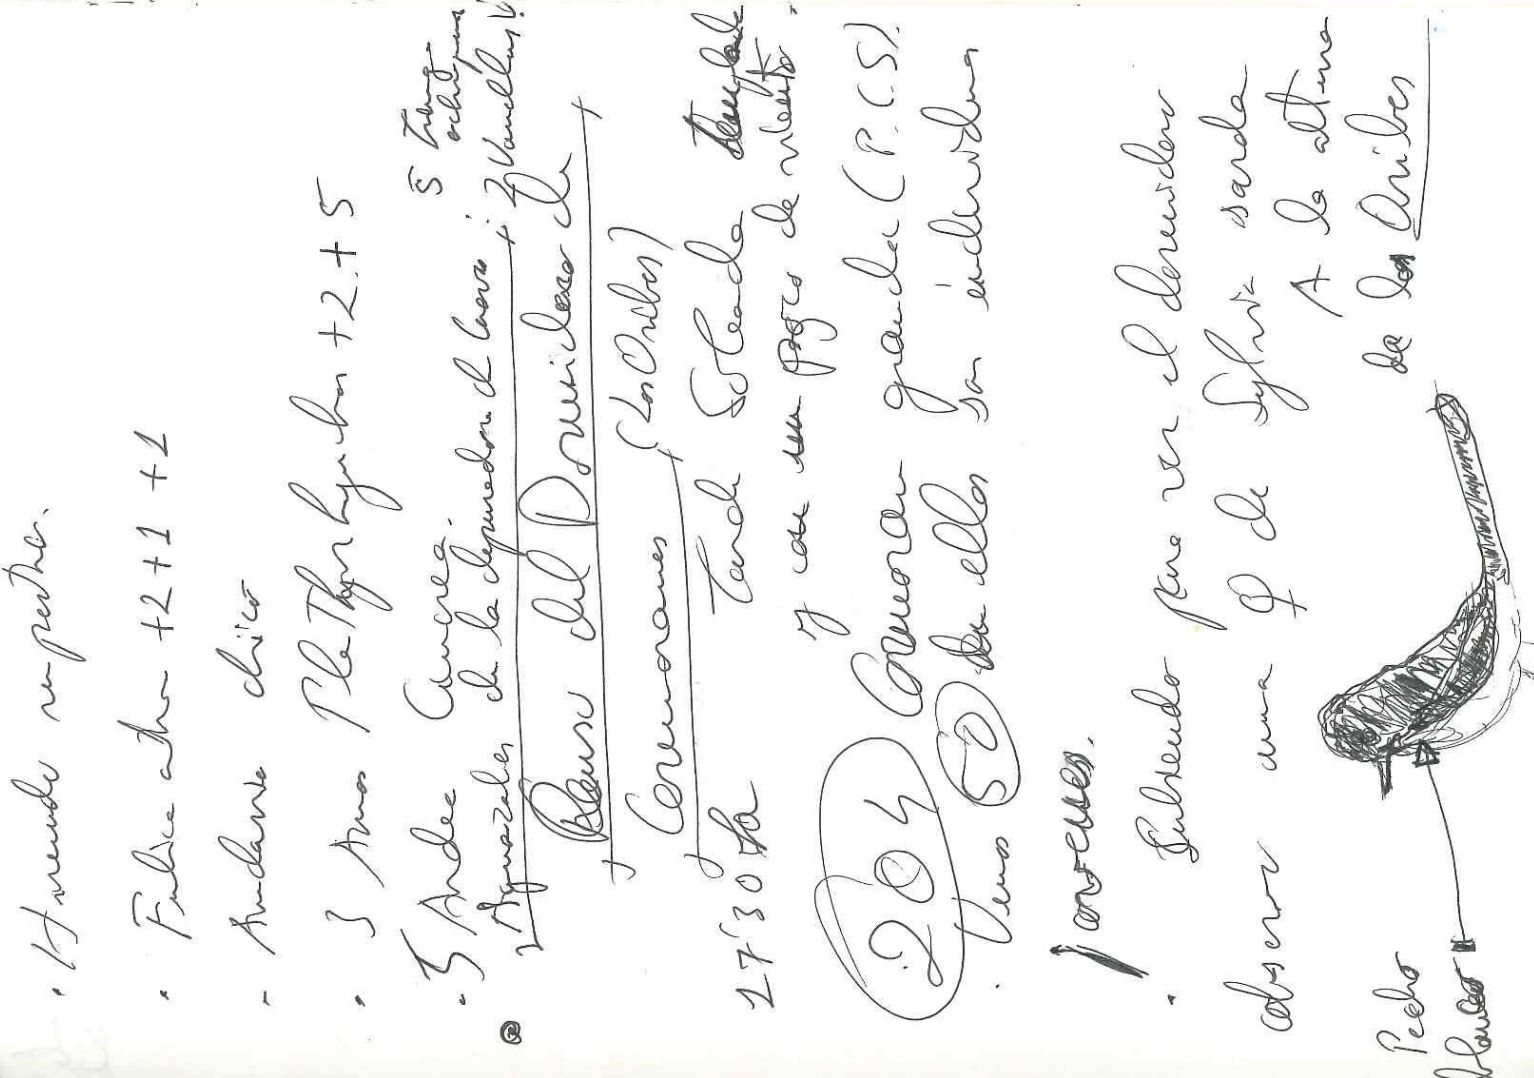 · Hirundo rupestris.
· Fulica atra +2+1+1
- Andarríos chico
· 3 Anas Platyrhynchos +2+5
· 5 Ardea Cinerea.
de la depuradora d Coria : 2 Vanellus
Censo del Dormidero de
Cormoranes (Los Oribes)
17'30 ha Tarde Soleada
y con un poco de viento
204 Cormoran grande (P.C.S).
· Vemos 50 de ellos son individuos
jovenes.
· Subiendo para ver el dormidero
observo una ♀ de Sylvia sarda
A la altura
de los Oribes
Pecho
blanco